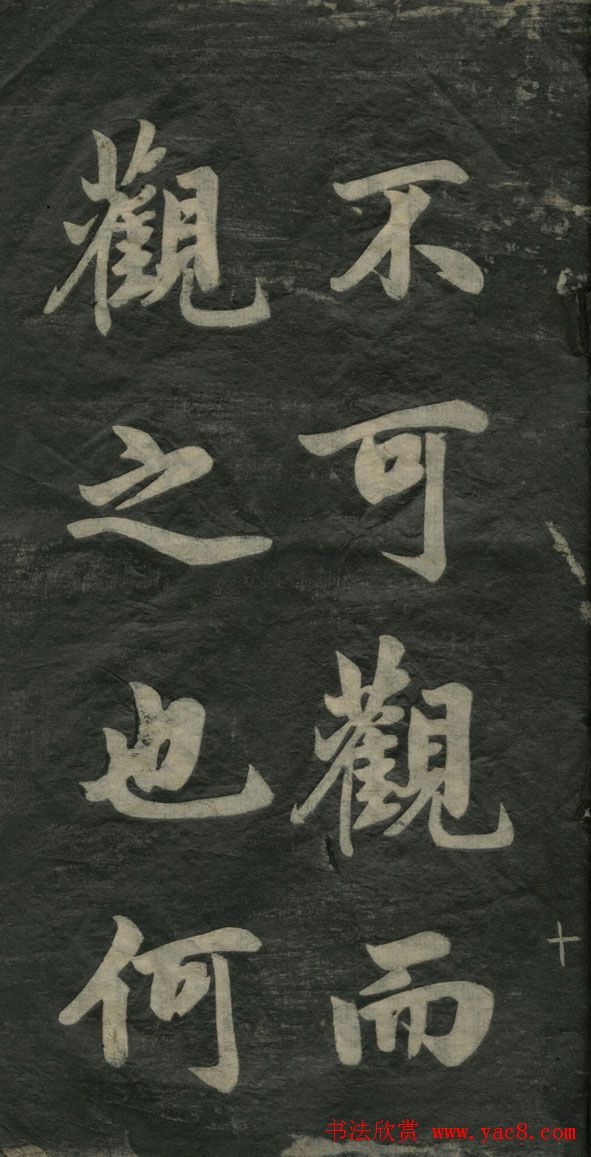 不可觀而
觀之也何
十
书法欣赏 www.yac8.com